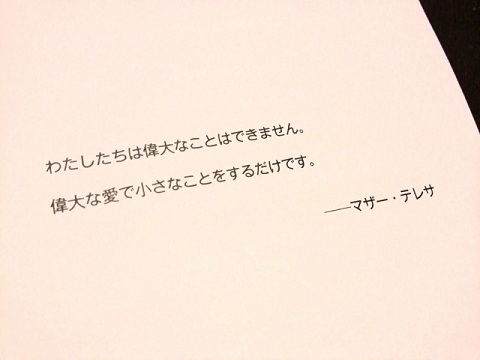 わたしたちは偉大なことはできません。
偉大な愛で小さなことをするだけです。
――マザー・テレサ